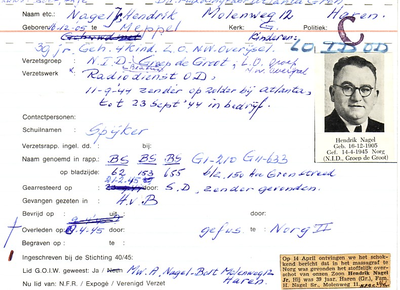 Naam etc.: Nagel Jr, Hendrik Molenweg 12 Haren.
Geboren: 16-12-05 te Meppel Kerk: G. Politiek: C
39 jr. Geh. 4 kind. Z.O. N.W. Overijsel. Kinderen: LO ID OD
Verzetsgroep: N.I.D. Groep de Groot, L.O. groep
Verzetswerk: Radiodienst O.D. N.W. Overijsel
11-9-44 zender op zolder bij atlanta,
tot 23 sept '44 in bedrijf.
Contactpersonen:
Schuilnamen: Spijker
Verzetsrapp. ingel. dd. bij:
Naam genoemd in rapp.: BS BS BS G1-210 G11-633
op bladzijde: 62 153 655 blz. 150 Grensstreek
Gearresteerd op 21-2-45 door: S.D, zender gevonden.
Gevangen gezeten in: H.v.B
Bevrijd op: door:
Overleden op: 4-45 te: gefus. te Norg II
Begraven op: te:
Ingeschreven bij de Stichting 40/45:
Lid G.O.I.W. geweest: Ja / Mw. A. Nagel-Bult Molenweg 12
Nu lid van: N.F.R. / Expogé / Verenigd Verzet Haren.
Hendrik Nagel
Geb. 16-12-1905
Gef. 14-4-1945 Norg
(N.I.D., Groep de Groot)
Op 14 April ontvingen we het schok-
kend bericht dat in het massagraf te
Norg was gevonden het stoffelijk over-
schot van onzen Zoon Hendrik Nagel
Jr. Hij was 39 jaar. Haren (Gr.), Fam.
H. Nagel Sr., Molenweg 11.